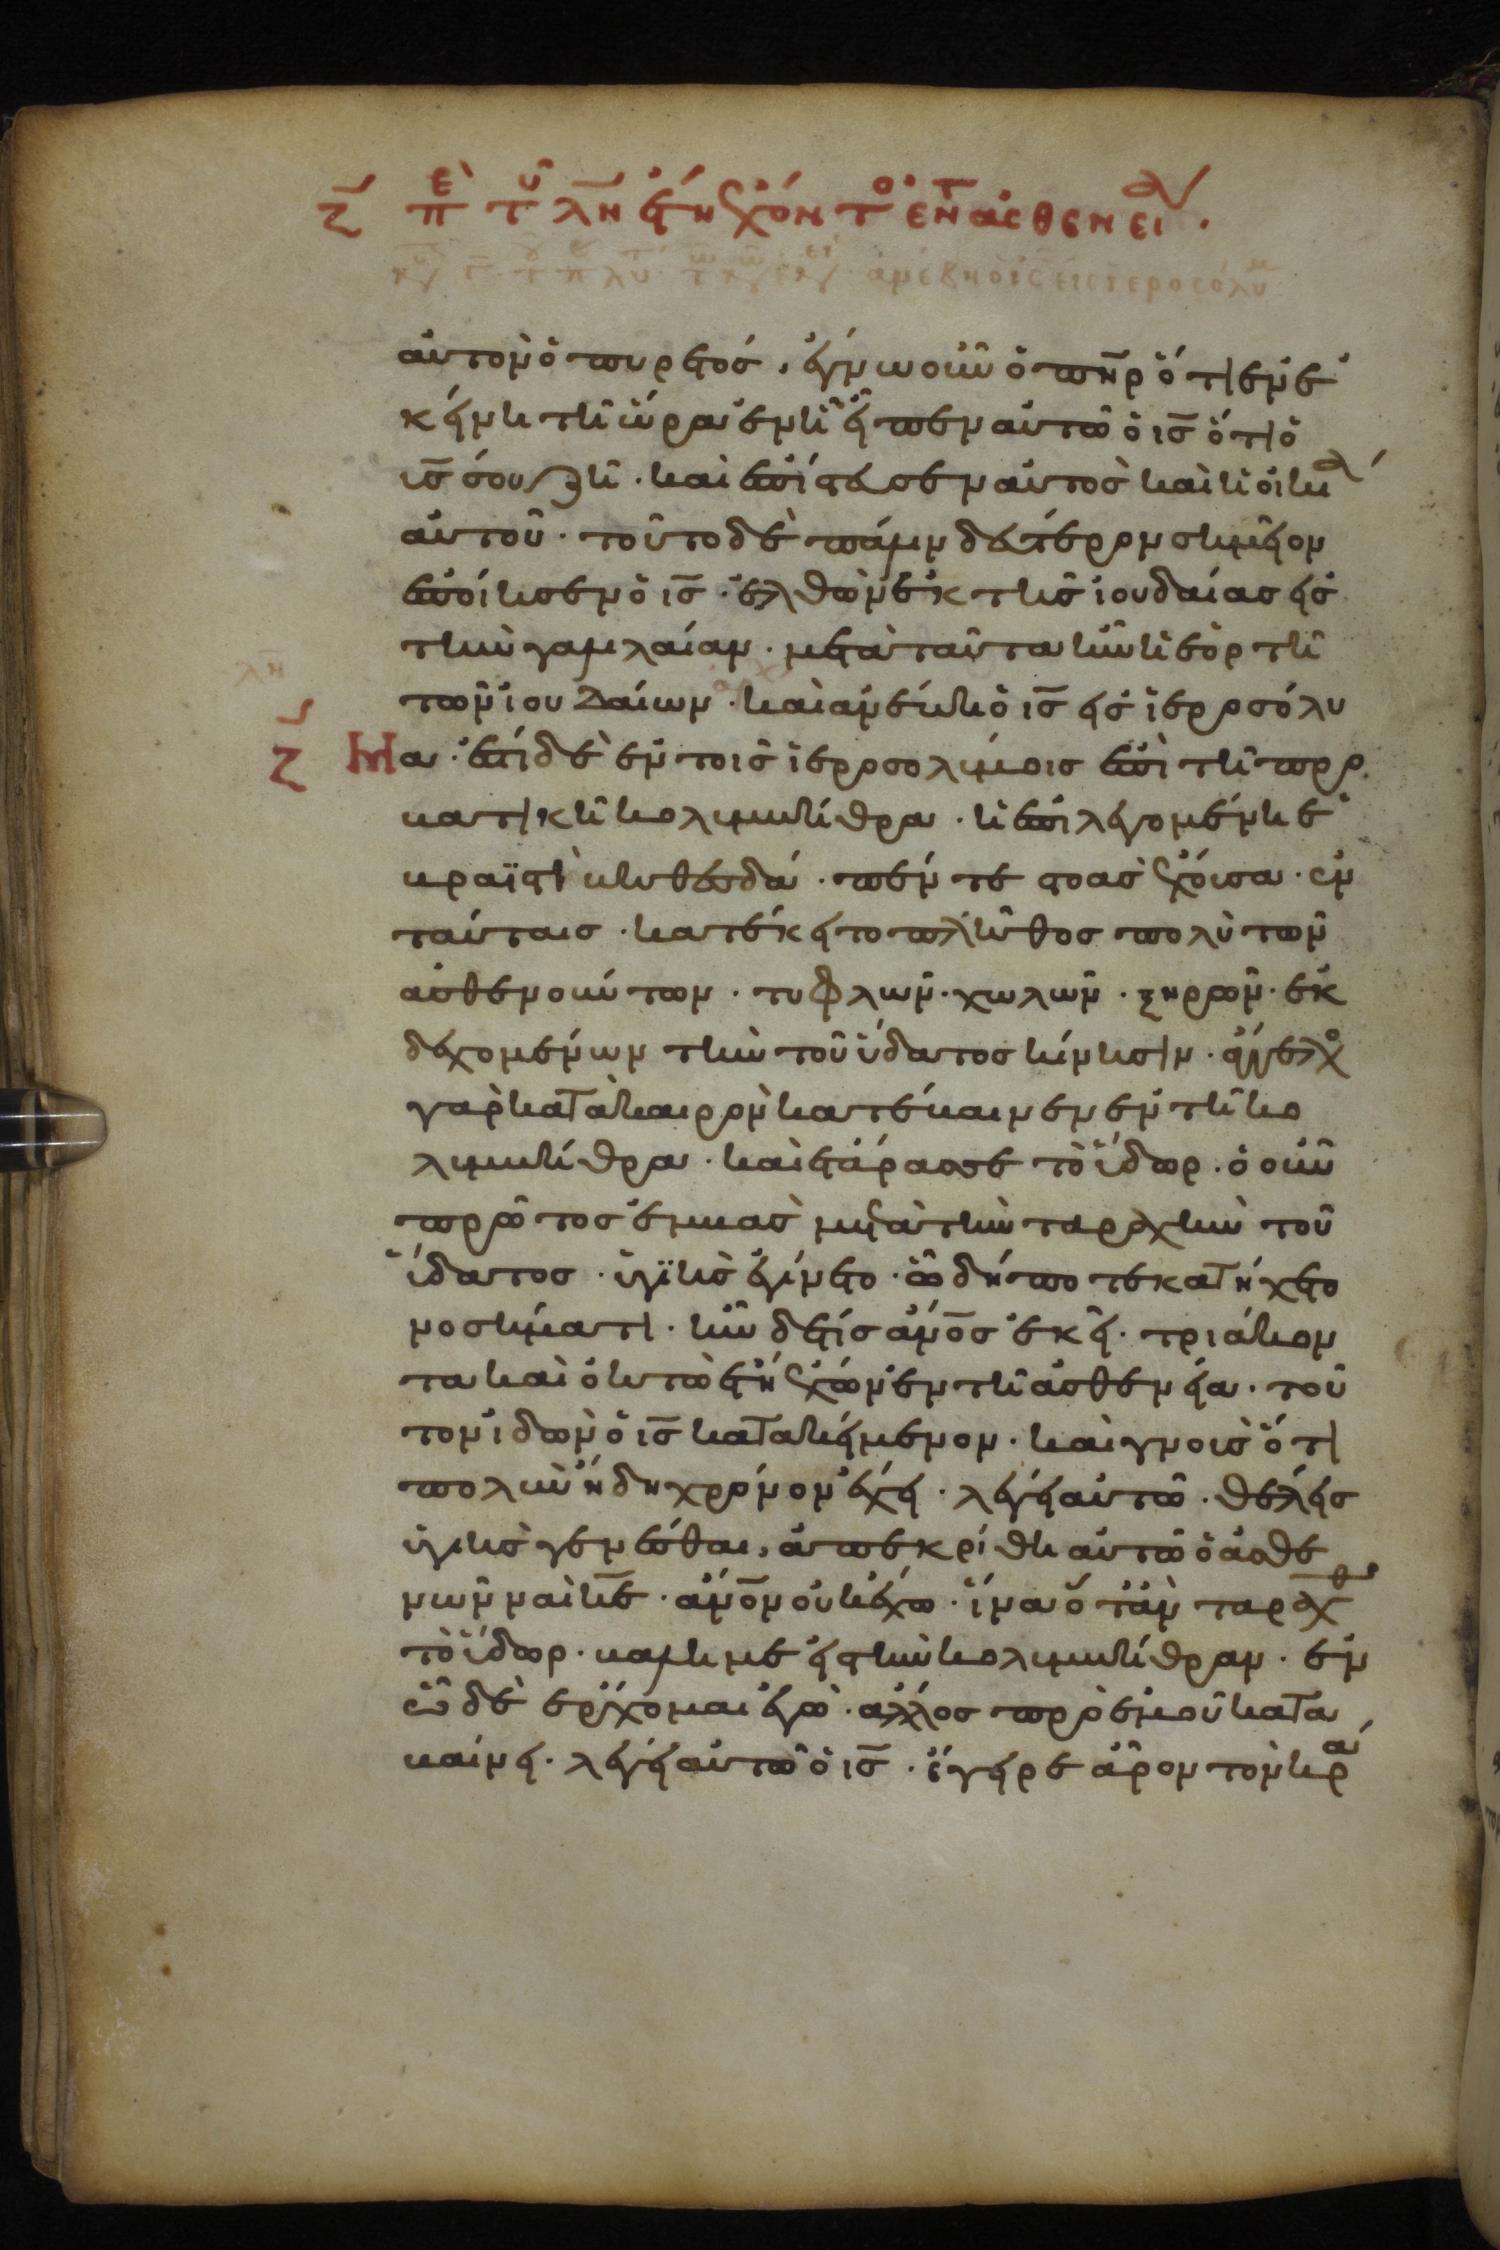 ζ̄ πὲ τῦ λ̄η ἔτη ἔχόντο ἐν τ ἀσθενεία .
αὐτὸν ὁ πυρετός , ἔγνω οὖν ὁ πη̄ρ ὅτι ἐν ἐ
κείνη τῆ ὥρα ἐν ἧ εἶπεν αὐτῶ ὁ ις̄ ὅτι ὁ
υς̄ σου ζῆ · καὶ ἐπίστευσεν αὐτὸς καὶ ἡ οἰκία
αὐτοῦ · τοῦτο δὲ πάλιν δεύτερον σημεῖον
ἐποίησεν ὁ ις̄ · ἐλθὼν ἐκ τῆς ἰουδαίας εἰς
τὴν γαλιλαίαν · μετὰ ταῦτα ἦν ἡ ἑορτὴ
τῶν ἰουδαίων · καὶ ἀνέβη ὁ ις̄ εἰς ἱεροσόλυ
ζ̄ Μα · ἔστι δὲ ἐν τοῖς ἱεροσολύμοις ἐπὶ τῆ προ
βατικῆ κολυμβήθρα · ἡ ἐπιλεγομένη ἑ
βραϊστὶ βηθεσδά · πέντε στοὰς ἔχουσα · ἐν
ταύταις · κατέκειτο πλῆθος πολὺ τῶν
ἀσθενούντων · τυφλῶν · χωλῶν · ξηρῶν · ἐκ
δεχομένων τὴν τοῦ ὕδατος κίνησιν · ἄγγελο
γὰρ κατὰ καιρὸν κατέβαινεν ἐν τῆ κο
λυμβήθρα · καὶ ἐτάρασσε τὸ ὕδωρ · ὁ οὖν
πρῶτος ἐμβὰς μετὰ τὴν ταραχὴν τοῦ
ὕδατος · ὑγϊὴς ἐγίνετο · ὧ δήποτε κατήχετο
νοσήματι · ἦν δέ τίς ἄν̄ος ἐκεῖ · τριάκον
τα καὶ ὀκτὼ ἔτη ἔχων ἐν τῆ ἀσθενεία · τοῦ
τον ἰδὼν ὁ ις̄ κατακείμενον · καὶ γνοὺς ὅτι
πολὺν ἤδη χρόνον ἔχει · λέγει αὐτῶ · θέλεις
ὑγιὴς γενέσθαι , ἀπεκρίθη αὐτῶ ὁ ἀσθε
νῶν ναὶ κ̄ε · ἄν̄ον οὐκ ἔχω · ἵνα ὅταν ταραχθ
τὸ ὕδωρ · βάλη με εἰς τὴν κολυμβήθραν · ἐν
ὧ δὲ ἔρχομαι ἐγὼ · ἄλλος πρὸ ἐμοῦ κατα
βαίνει · λέγει αὐτῶ ὁ ις̄ · ἔγειρε ἆρον τὸν κρά